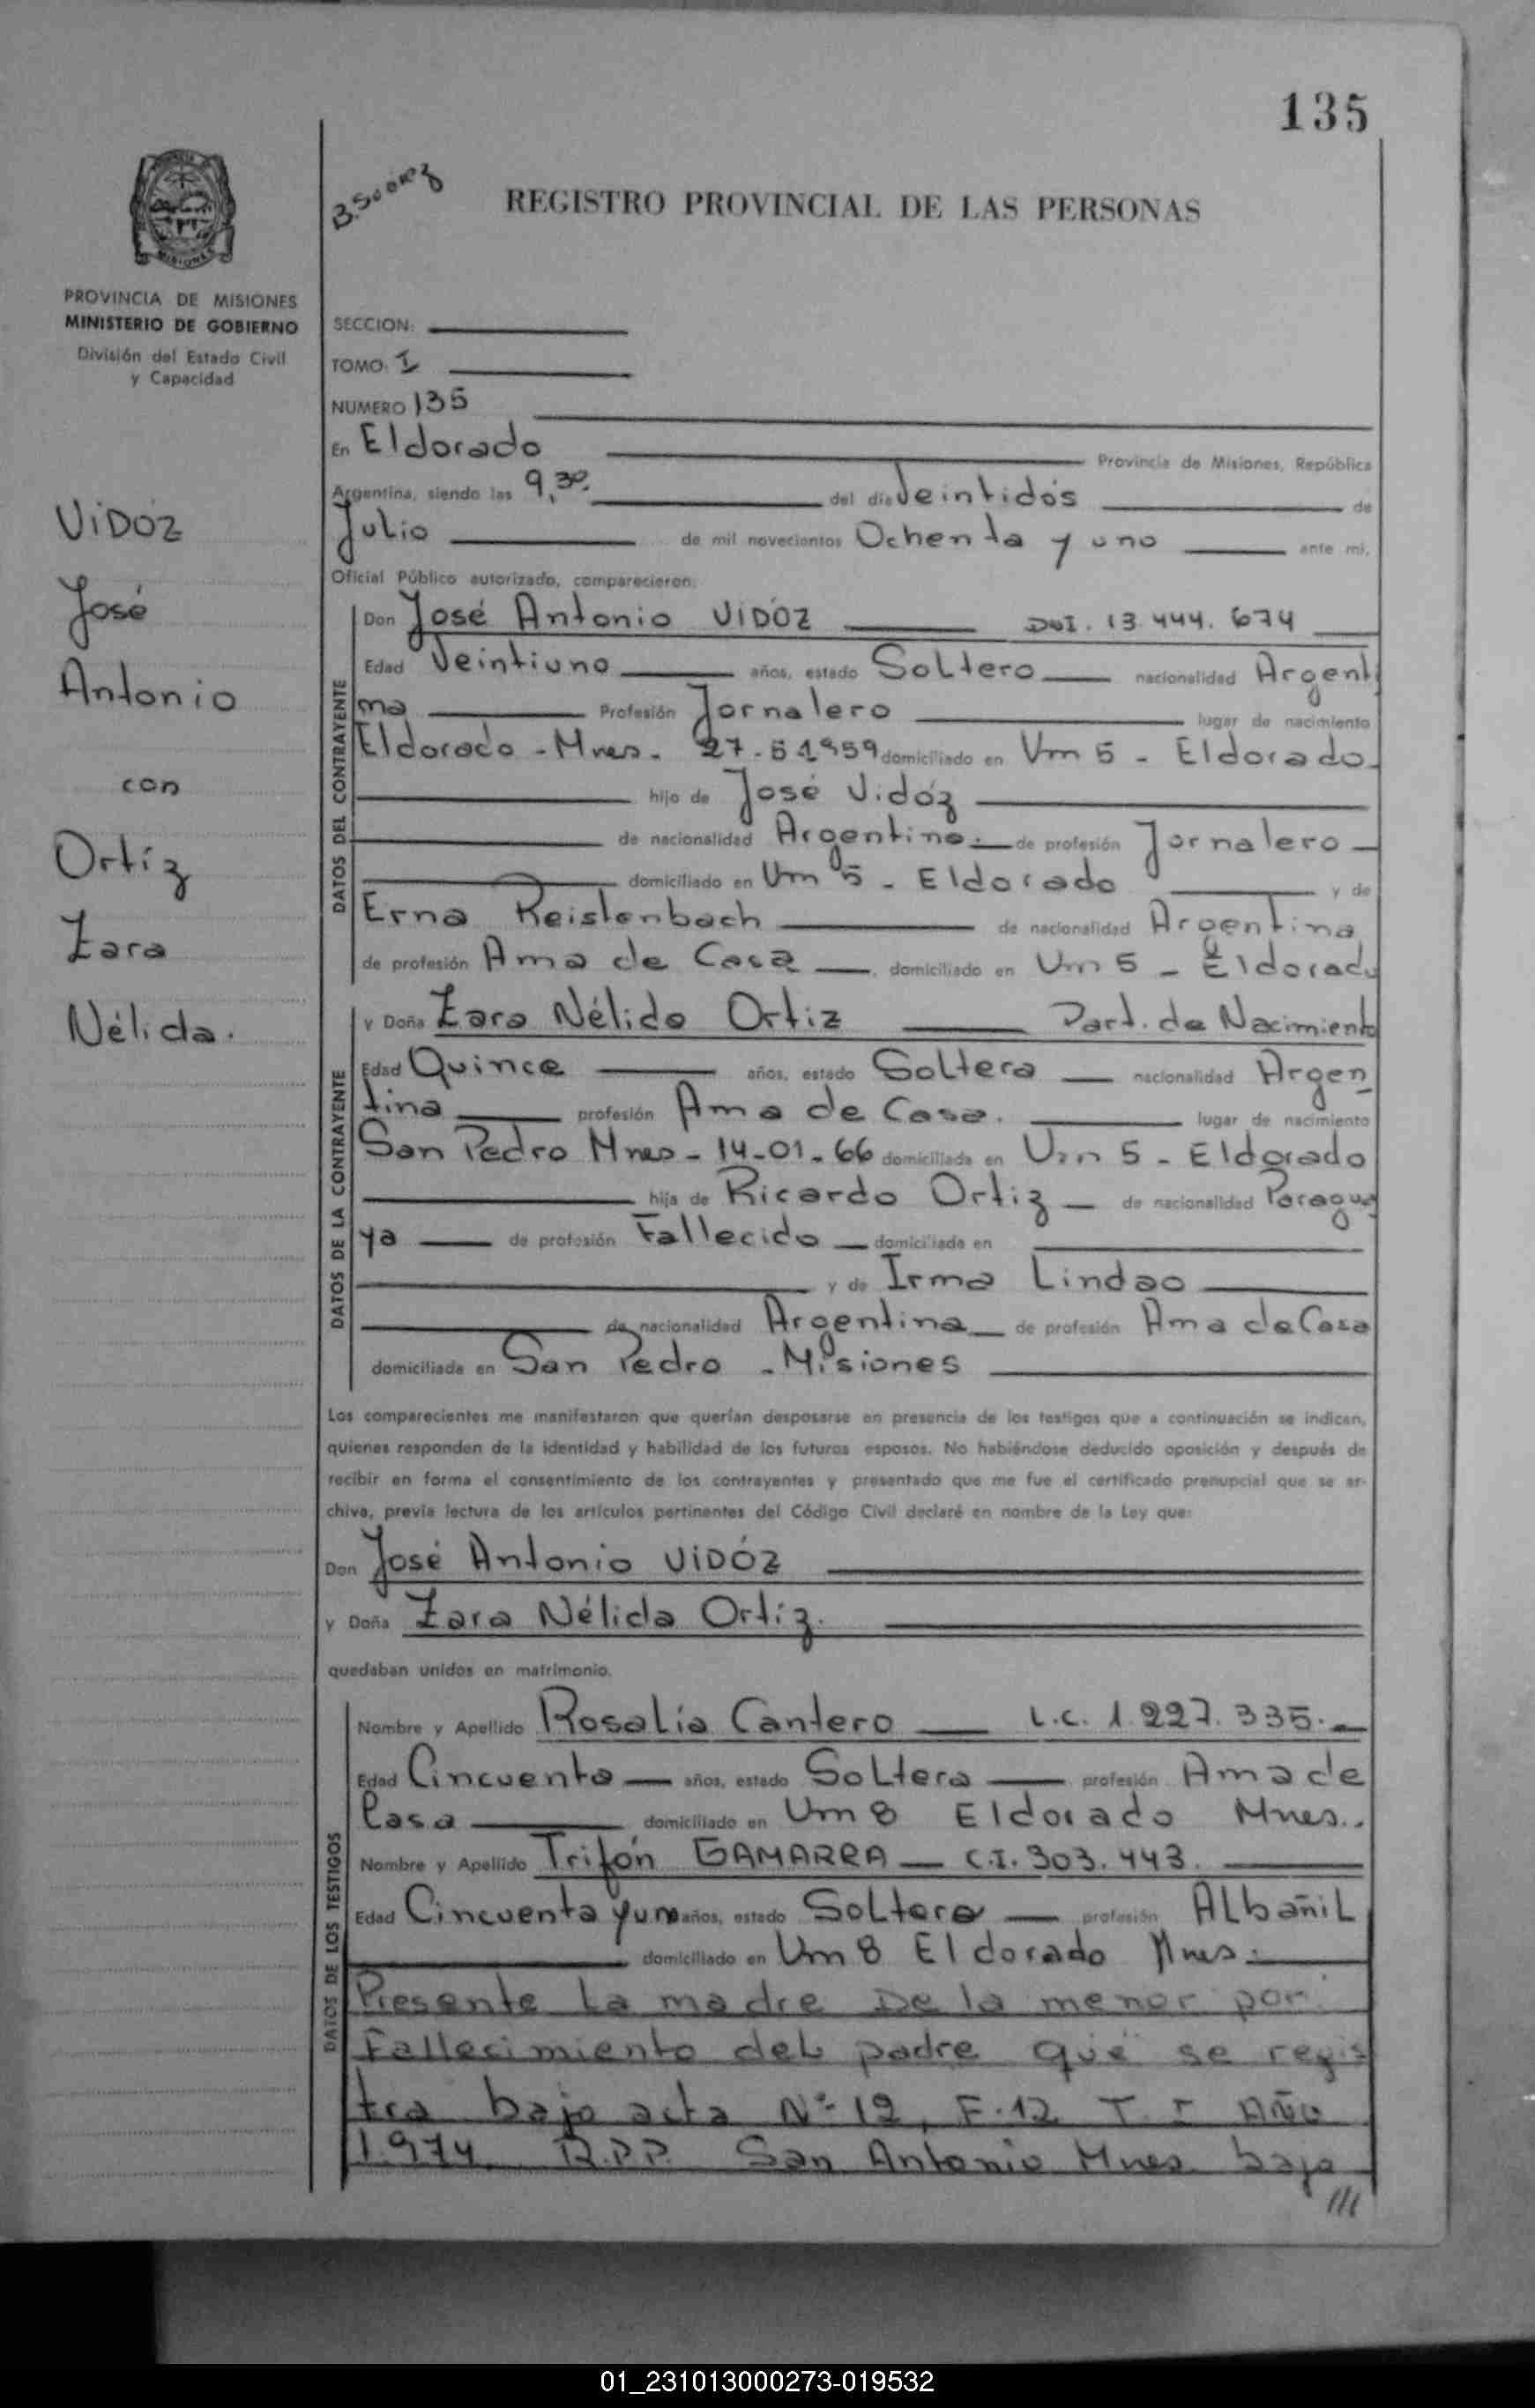 135
REGISTRO PROVINCIAL DE LAS PERSONAS
MISIONES
PROVINCIA DE MISIONES
MINISTERIO DE GOBIERNO
División del Estado Civil
y Capacidad
SECCION:
TOMO: I
NUMERO 135
En Eldorado Provincia de Misiones, República
Argentina, siendo las 9,30. del día Veintidós de
Julio de mil novecientos Ochenta y uno ante mi,
Oficial Público autorizado, comparecieron:
VIDOZ
José
Antonio
con
Ortíz
Zara
Nélida.
DATOS DEL CONTRAYENTE
Don José Antonio VIDOZ DNI. 13.444.674
Edad Veintiuno años, estado Soltero nacionalidad Argenti
na Profesión Jornalero lugar de nacimiento
Eldorado - Mnes. 27-5 1959 domiciliado en Vm 5 - Eldorado
hijo de José Vidóz
de nacionalidad Argentino. de profesión Jornalero
domiciliado en Um 5 - Eldorado y de
Erna Reistenbach de nacionalidad Argentina
de profesión Ama de Casa, domiciliado en Um 5 - Eldorado
DATOS DE LA CONTRAYENTE
y Doña Zara Nélida Ortiz Part. de Nacimiento
Edad Quince años, estado Soltera nacionalidad Argen
tina profesión Ama de Casa. lugar de nacimiento
San Pedro Mnes - 14-01-66 domiciliada en Um 5 - Eldorado
hija de Ricardo Ortiz de nacionalidad Paragua
ya de profesión Fallecido domiciliado en
y de Irma Lindao
de nacionalidad Argentina de profesión Ama de Casa
domiciliada en San Pedro - Misiones
Los comparecientes me manifestaron que querían desposarse en presencia de los testigos que a continuación se indican,
quienes responden de la identidad y habilidad de los futuros esposos. No habiéndose deducido oposición y después de
recibir en forma el consentimiento de los contrayentes y presentado que me fue el certificado prenupcial que se ar-
chiva, previa lectura de los artículos pertinentes del Código Civil declaré en nombre de la Ley que:
Don José Antonio VIDÓZ
y Doña Zara Nélida Ortíz.
quedaban unidos en matrimonio.
DATOS DE LOS TESTIGOS
Nombre y Apellido Rosalía Cantero L.C. 1.227.335.
Edad Cincuenta años, estado Soltera profesión Ama de
Casa domiciliado en Um 8 Eldorado Mnes..
Nombre y Apellido Trifón GAMARRA C.I. 303.443.
Edad Cincuenta y un años, estado Soltero profesión Albañil
domiciliado en Um 8 Eldorado Mnes.
Presente la madre De la menor por
fallecimiento del padre que se regis
tra bajo acta Nº 12, F.12 T. I Año
1.974 R.P.P. San Antonio Mnes. bajo
///
01_231013000273-019532